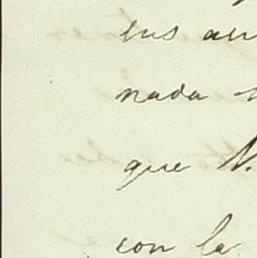 sus
nada
que V.
con la